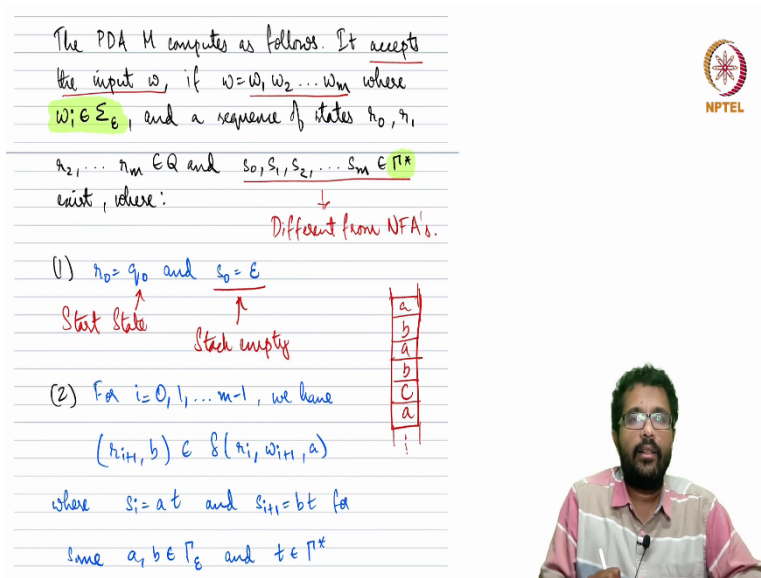 The PDA M computes as follows. It accepts
the input w, if w=w₁w₂...wₘ where
wᵢ∈Σ_ε, and a sequence of states r₀, r₁,
r₂, ... rₘ ∈Q and s₀, s₁, s₂, ... sₘ ∈ Γ*
exist, where:
Different from NFA's.
(1) r₀= q₀ and s₀ = ε
Start State
Stack empty
(2) For i=0, 1, ... m-1, we have
(rᵢ₊₁, b) ∈ δ(rᵢ, wᵢ₊₁, a)
where sᵢ = at and sᵢ₊₁ = bt for
some a, b ∈ Γ_ε and t ∈ Γ*
a
b
a
b
c
a
⋮
NPTEL